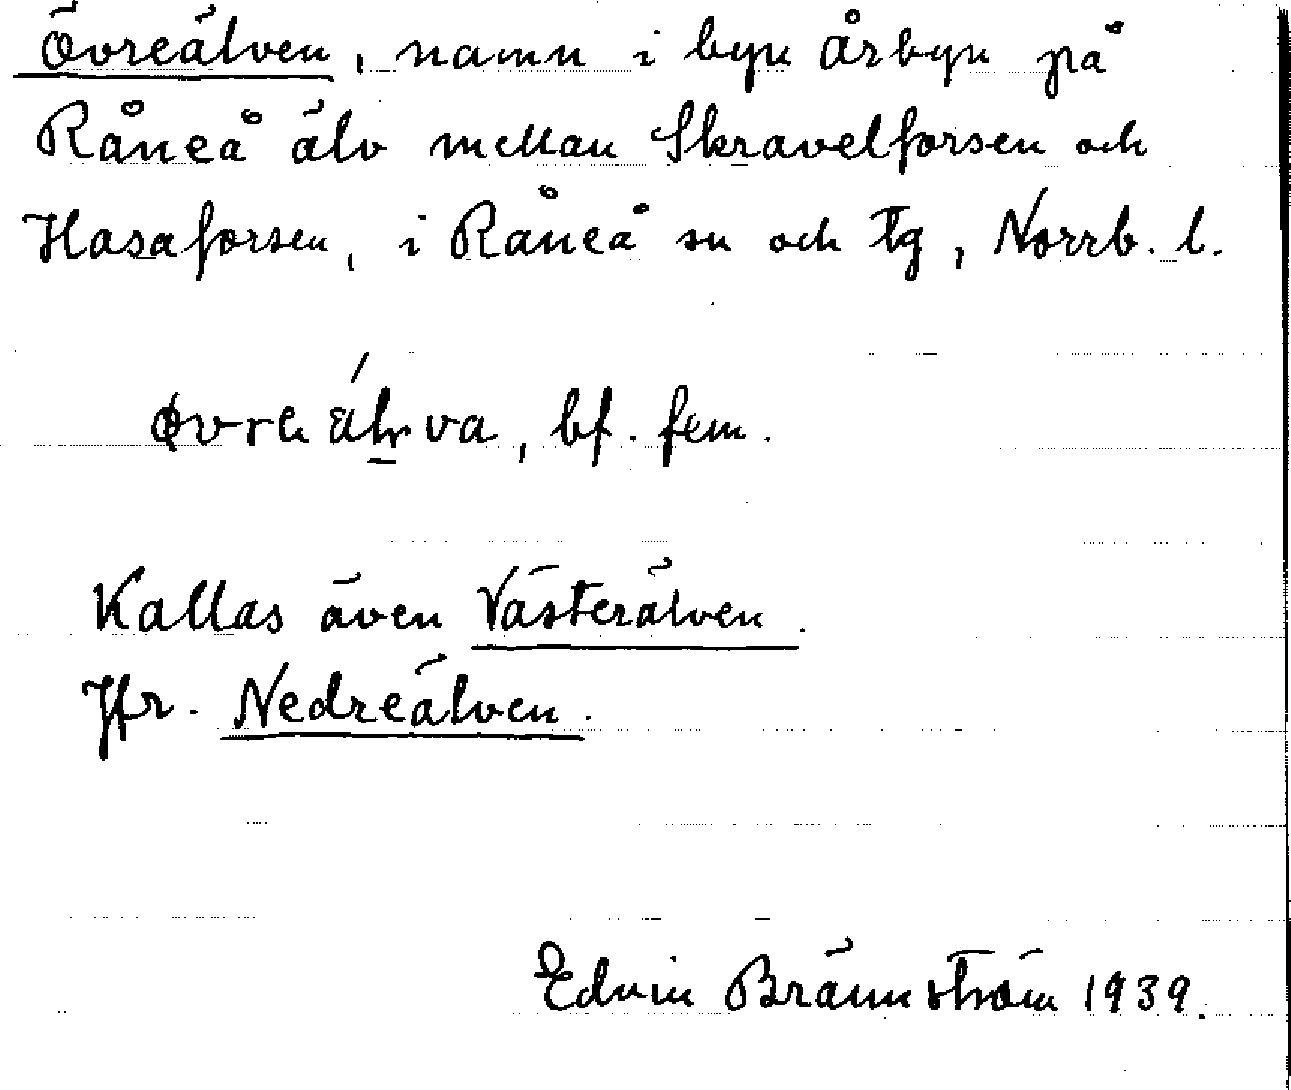 Övreälven, namn i byn Årbyn på
Råneå älv mellan Skravelforsen och
Hasaforsen, i Råneå sn och tg, Norrb. l.
bf. fem.
Kallas även Västerälven.
Jfr. Nedreälven.
Edvin Brännström 1939.